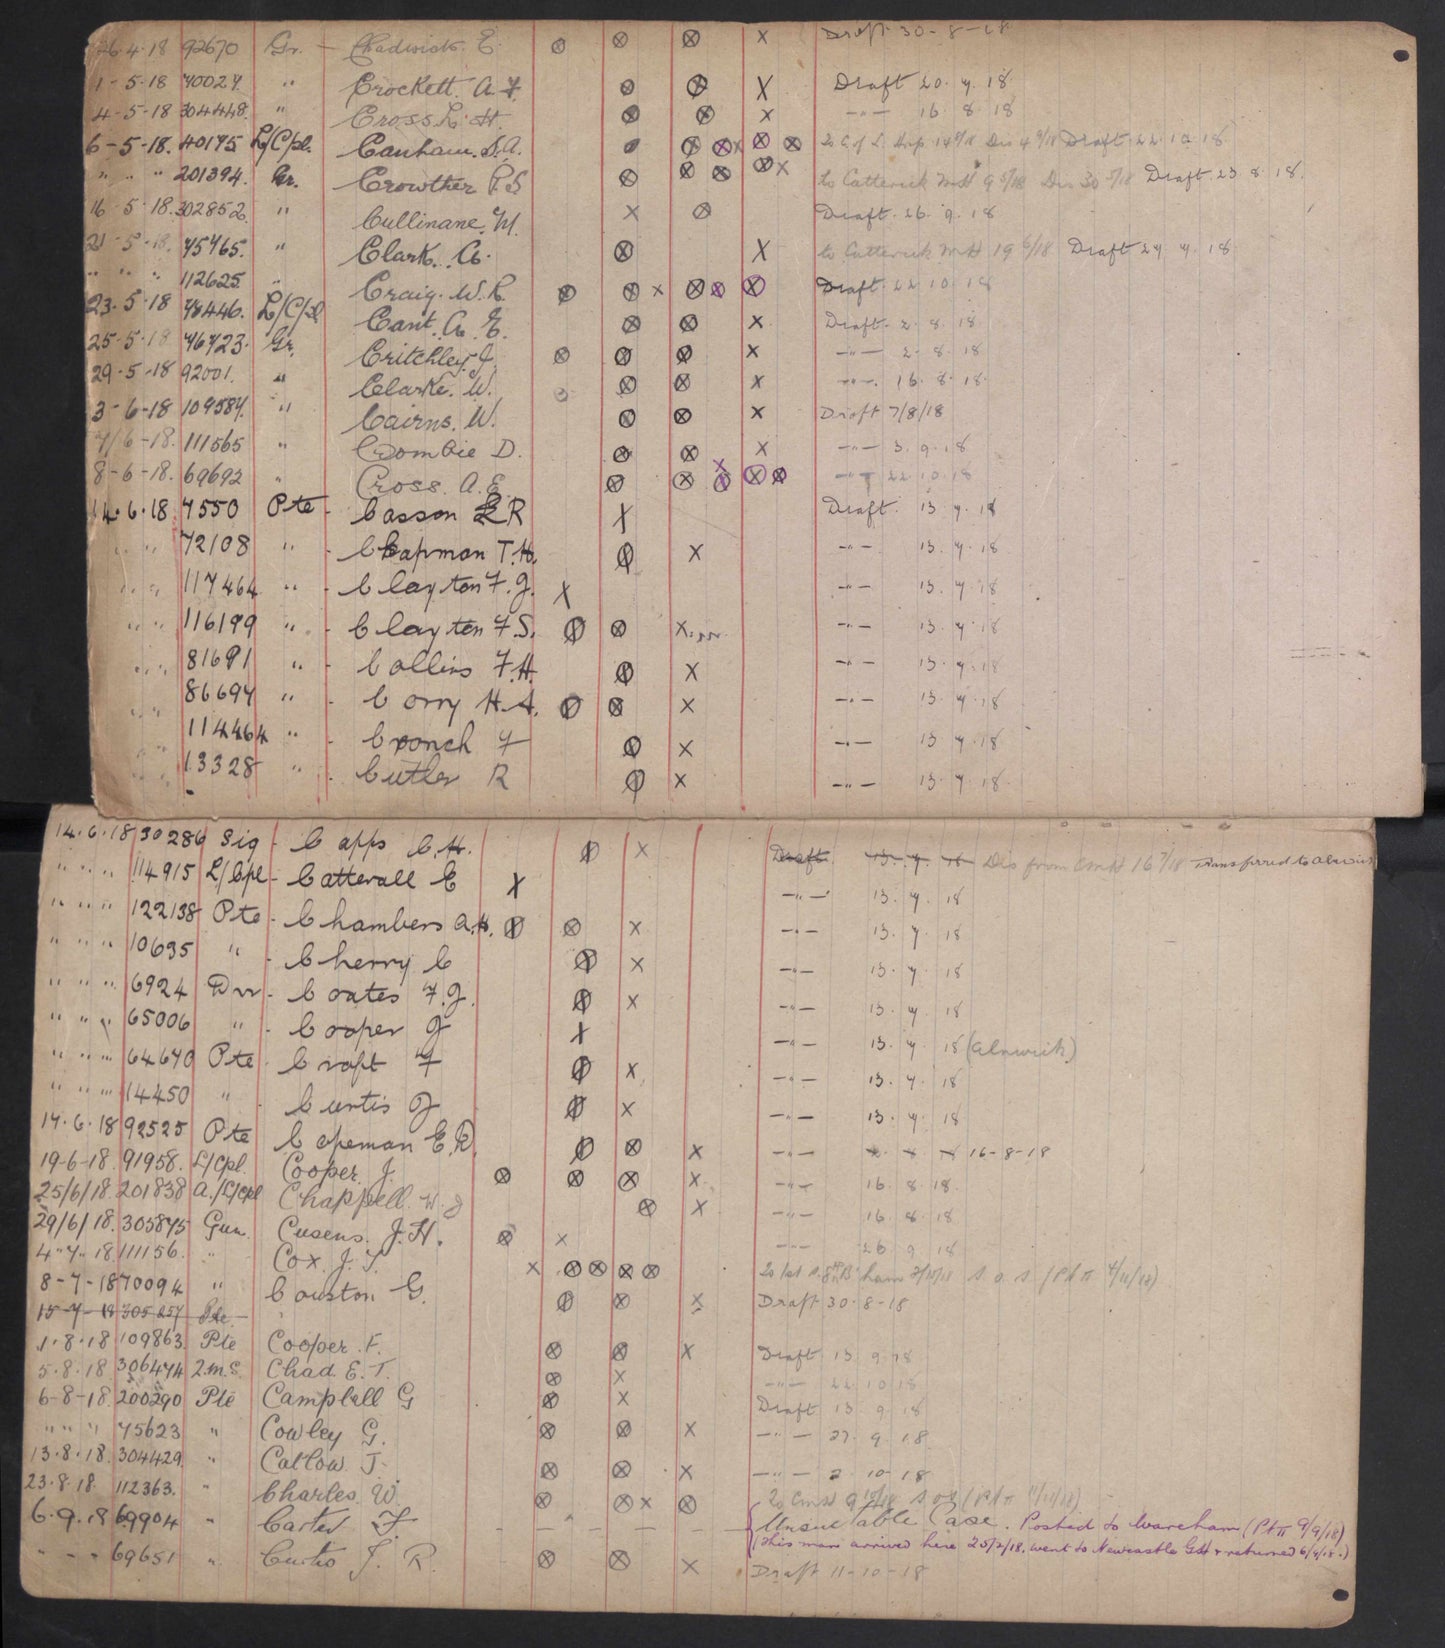 26.4.18 92670 Gr. — Chadwick. E. Draft 30-8-18
1-5.18 70027. " Crockett. A.F. Draft 20.7.18
4-5-18 304448. " Cross L. H. -"- 16.8.18
6-5-18. 40175 L/Cpl. Canham. S.A. Draft. 22.10.18
" " " 201394. Gr. Crowther P.S to Catterick MH Draft 23.8.18.
16-5-18. 302852 " Cullinane. M. Draft. 26.9.18
21-5-18. 75765. " Clark. A. to Catterick MH 19 6/18 Draft 27.7.18
" " " 112625 " Craig. W.R. Draft. 22.10.18
23.5.18 78446. L/C/pl Cant. A. E. Draft. 2.8.18
25-5-18 76723. Gr. Critchley J. -"- 2.8.18
29-5-18 92001. " Clarke. W. -"-. 16.8.18.
3-6-18 109587. " Cairns. W. Draft 7/8/18
7/6-18. 111565 " Crombie D. -"- 3.9.18
8-6-18. 69692 " Cross. A.E. -"- 22.10.18
14.6.18 7550 Pte - Casson R Draft. 13.7.18
" " 72108 " - Chapman T.H. -"- 13.7.18
" " 117464 " - Clayton F.J. -"- 13.7.18
" " 116199 " - Clayton F.S. -"- 13.7.18
" " 81691 " - Collins F.H. -"- 13.7.18
" " 86697 " - Corry H.A. -"- 13.7.18
" " 114464 " - Cronch F -"- 13.7.18
" " 13328 " - Cutler R -"- 13.7.18
14.6.18 30286 Sig - Capps C.H. Draft. 13.7.18 Dis from CMH 16 7/18 Transferred to Alnwick
" " " 114915 L/Cpl - Catterall E -"- 13.7.18
" " " 122138 Pte - Chambers A.H. -"- 13.7.18
" " " 10635 " - Cherry C -"- 13.7.18
" " " 6924 Dvr - Coates F.J. -"- 13.7.18
" " " 65006 " - Cooper J -"- 13.7.18 (Alnwick)
" " " 64670 Pte - Croft F -"- 13.7.18
" " " 14450 " - Curtis J -"- 13.7.18
17.6.18 92525 Pte Copeman E.R. -"- 16-8-18
19-6-18. 91958. L/Cpl. Cooper. J. -"- 16.8.18.
25/6/18. 201838 A./L/Cpl Chappell. W. J -"- 16.8.18
29/6/18. 305875 Gun. Cusens. J.H. -"- 26.9.18
4.7.18 111156. " Cox. J. T.
8-7-18 70094 " Couston G. Draft 30.8-18
15-7-18 305257 Pte.
1.8.18 109863. Pte Cooper. F. Draft 13.9.18
5.8.18 306474 2.M.S. Chad. E. T. -"- 22.10.18
6-8-18. 200290 Pte Campbell G Draft 13.9.18
" " " 75623 " Cowley G. -"- 27.9.18
13.8.18. 304429. " Callow. J. -"- 2.10-18
23.8.18. 112363. " Charles. W.
6.9.18 69904 " Carter F. Unsuitable Case. Posted to Wareham (Pt II 9/9/18)
(This man arrived here 25/2/18. went to Newcastle GH & returned 6/9/18.)
" " " 69651 " Curtis J. R. Draft 11-10-18